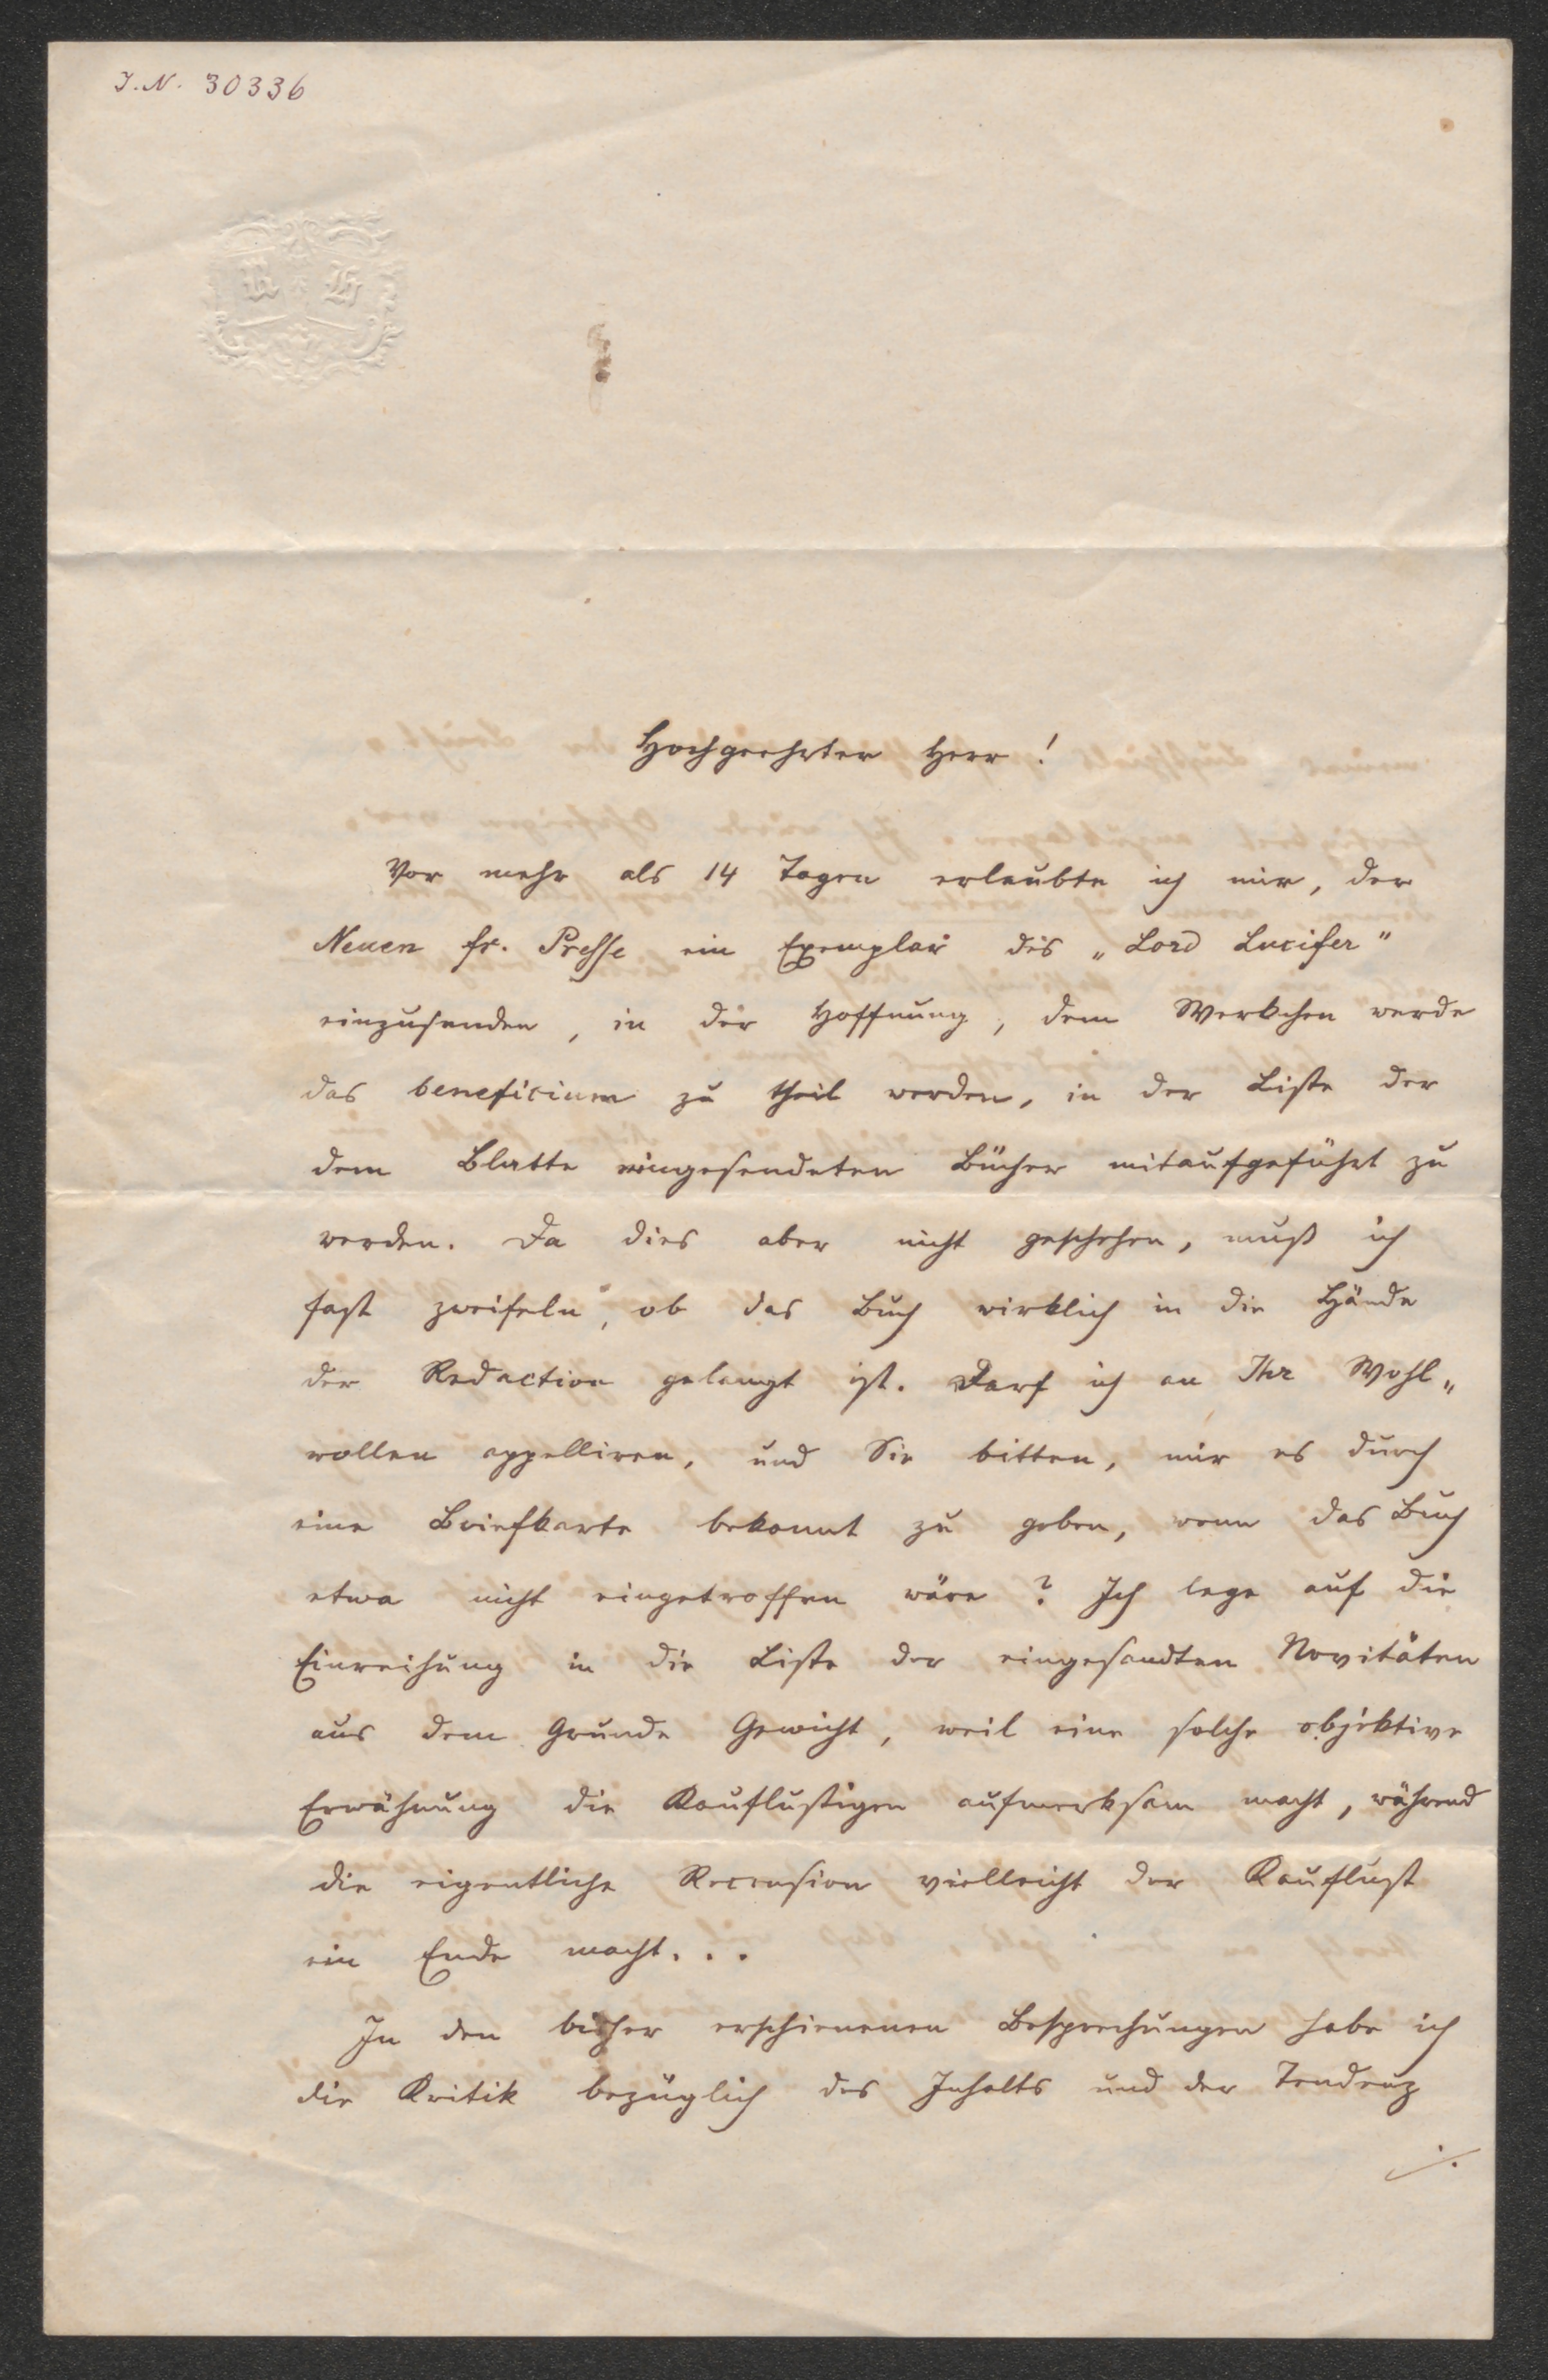 J.N. 30336
R H
Hochgeehrter Herr!
Vor mehr als 14 Tagen erlaubte ich mir, der
Neuen fr. Presse ein Exemplar des „Lord Lucifer"
einzusenden, in der Hoffnung, dem Werkchen werde
das beneficium zu theil werden, in der Liste der
dem Blatte eingesendeten Bücher mitaufgeführt zu
werden. Da dies aber nicht geschehen, muß ich
fast zweifeln, ob das Buch wirklich in die Hände
der Redaction gelangt ist. Darf ich an Ihr Wohl„
wollen appelliren, und Sie bitten, mir es durch
eine Briefkarte bekannt zu geben, wenn das Buch
etwa nicht eingetroffen wäre? Ich lege auf die
Einreihung in die Liste der eingesandten Novitäten
aus dem Grunde Gewicht, weil eine solche objektive
Erwähnung die Kauflustigen aufmerksam macht, während
die eigentliche Recension vielleicht der Kauflust
ein Ende macht...
In den bisher erschienenen Besprechungen habe ich
die Kritik bezüglich des Inhalts und der Tendenz
./.